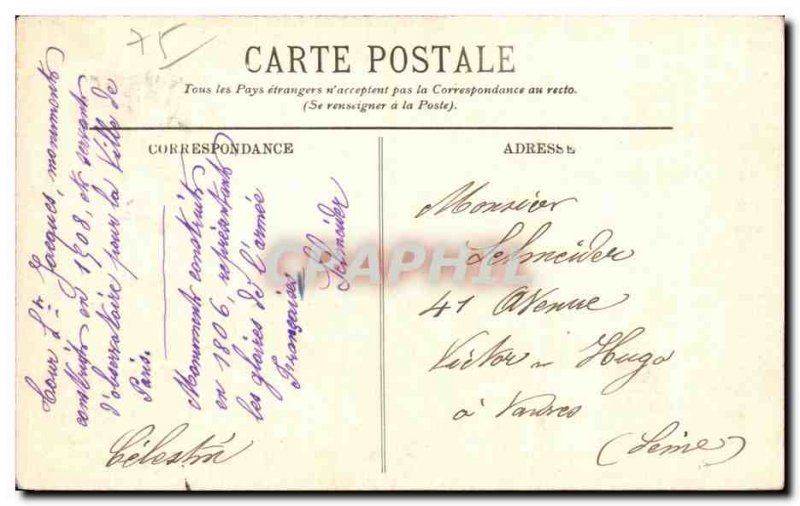 75
CARTE POSTALE
Tous les Pays étrangers n'acceptent pas la Correspondance au recto.
(Se renseigner à la Poste).
CORRESPONDANCE
ADRESSE
Tour St Jacques, monument
construit en 1508, et servant
d'observatoire pour la Ville de
Paris.
Monument construit
en 1806, représentant
les gloires de l'armée
Française
Schneider
Monsieur
Schneider
41 Avenue
Victor - Hugo
à Vanves
(Seine)
CPAPHIL